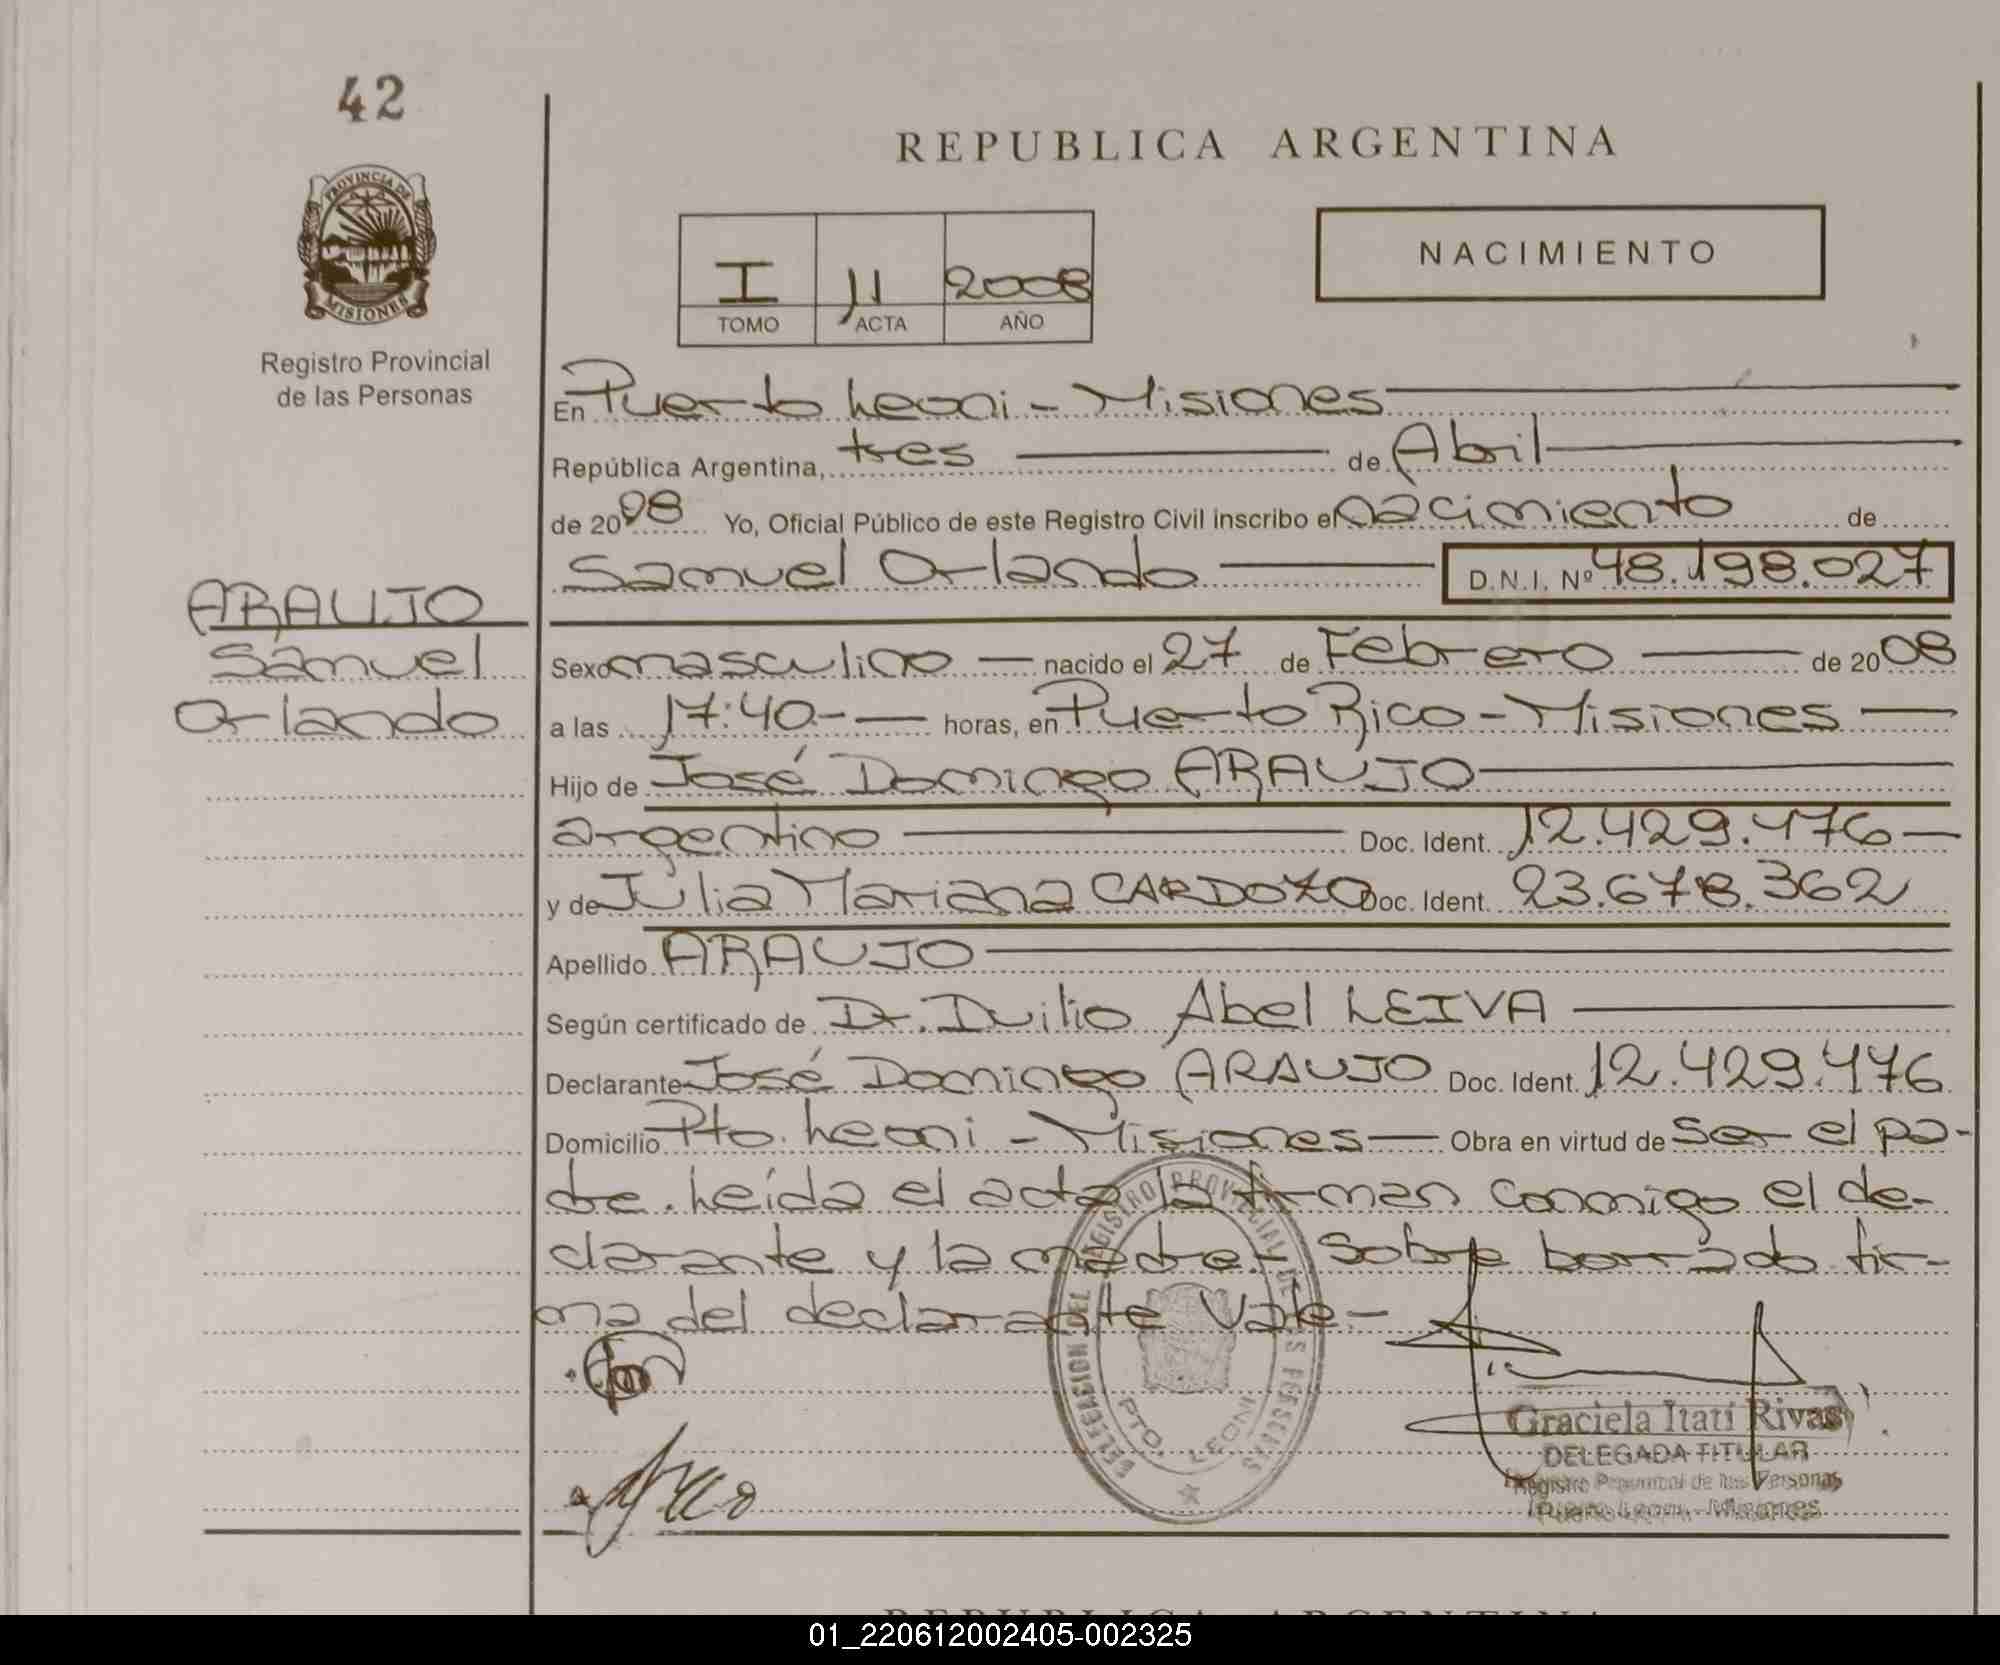 42
REPUBLICA ARGENTINA
PROVINCIA DE
MISIONES
Registro Provincial
de las Personas
I 11 2008
TOMO ACTA AÑO
NACIMIENTO
En Puerto Leoni - Misiones
República Argentina, tres de Abril
de 2008 Yo, Oficial Público de este Registro Civil inscribo el nacimiento de
Samuel Orlando D.N.I. Nº 48.198.027
ARAUJO
Samuel
Orlando
Sexo masculino — nacido el 27 de Febrero de 2008
a las 17:40.- horas, en Puerto Rico - Misiones
Hijo de José Domingo ARAUJO
argentino Doc. Ident. 12.429.476
y de Julia Mariana CARDOZO Doc. Ident. 23.678.362
Apellido ARAUJO
Según certificado de Dr. Duilio Abel LEIVA
Declarante José Domingo ARAUJO Doc. Ident. 12.429.476
Domicilio Pto. Leoni - Misiones Obra en virtud de ser el pa-
dre. Leída el acta la firman conmigo el de-
clarante y la madre.- Sobre borrado fir-
ma del declarante Vale.-
DELEGACION DEL REGISTRO PROVINCIAL DE LAS PERSONAS
PTO. LEONI
Graciela Itatí Rivas
DELEGADA TITULAR
Registro Provincial de las Personas
Puerto Leoni - Misiones
REPUBLICA ARGENTINA
01_220612002405-002325